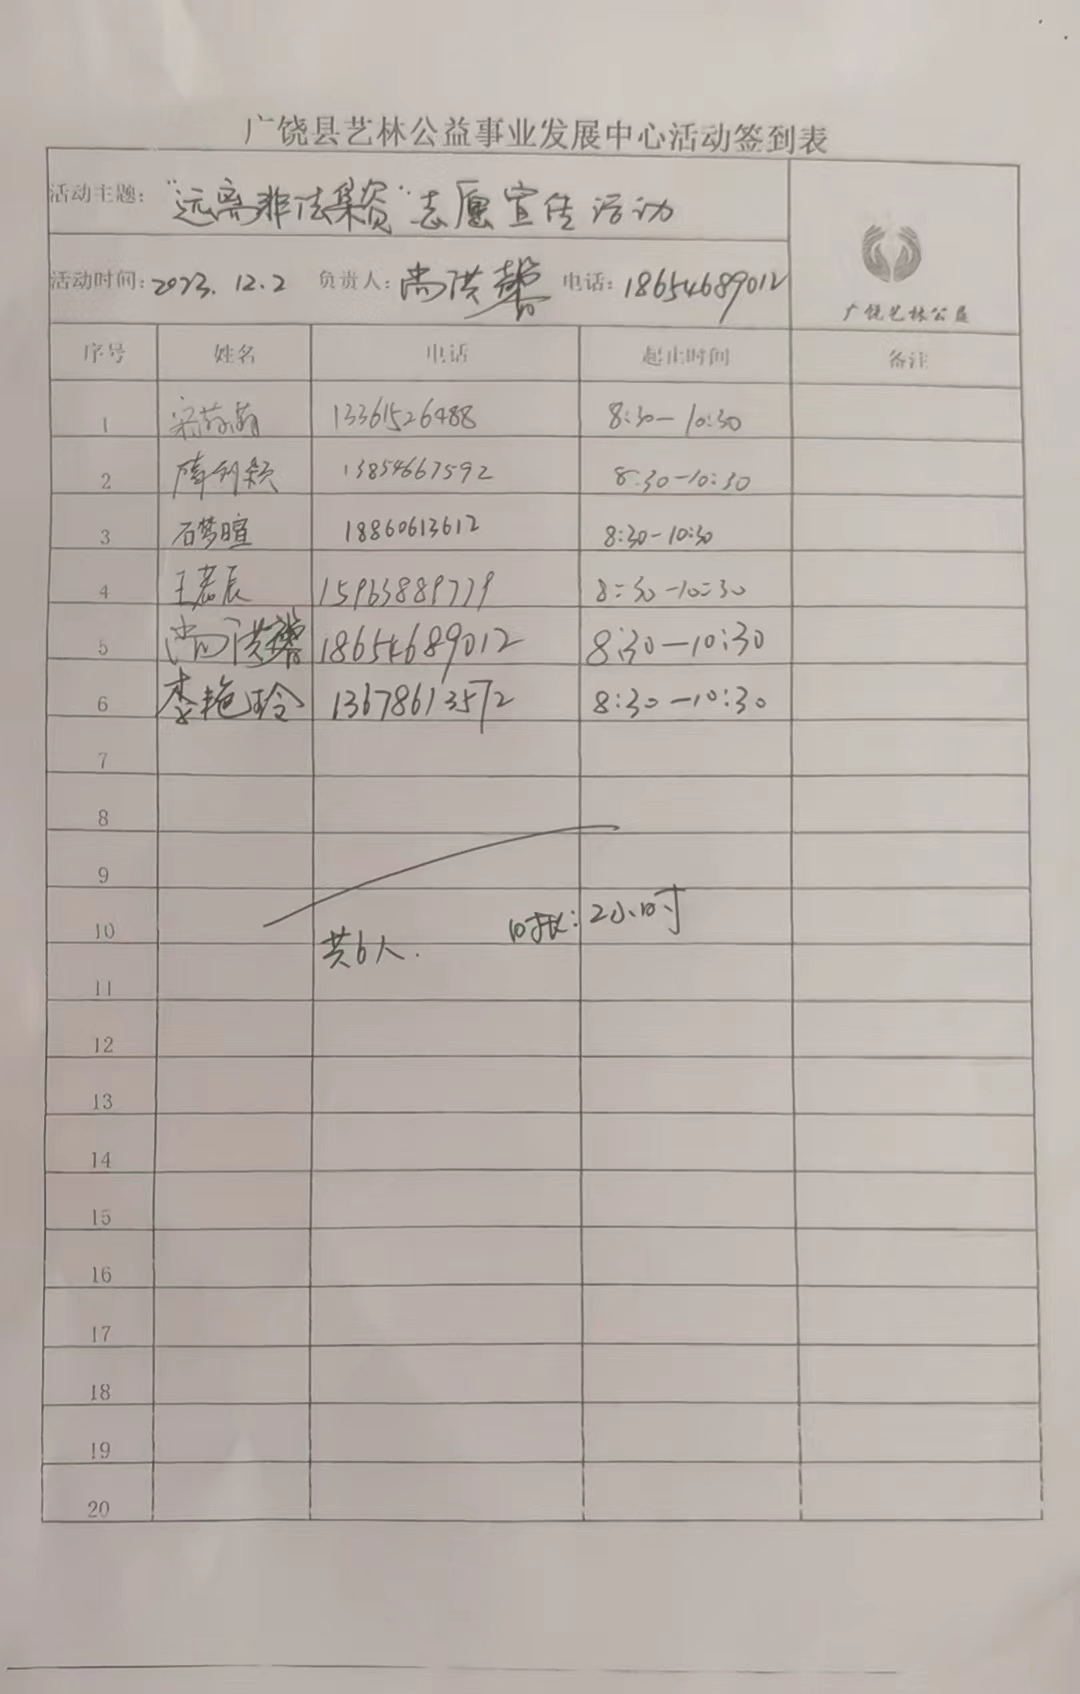 广饶县艺林公益事业发展中心活动签到表
活动主题：“远离非法集资”志愿宣传活动
活动时间：2023.12.2 负责人：尚洪馨 电话：18654689012
广饶艺林公益
序号 姓名 电话 起止时间 备注
1 13361526488 8:30-10:30
2 13854667592 8:30-10:30
3 石梦暄 18860613612 8:30-10:30
4 王君辰 15963889779 8:30-10:30
5 尚洪馨 18654689012 8:30-10:30
6 李艳玲 13678613572 8:30-10:30
7
8
9
10
共6人. 时长：2小时
11
12
13
14
15
16
17
18
19
20